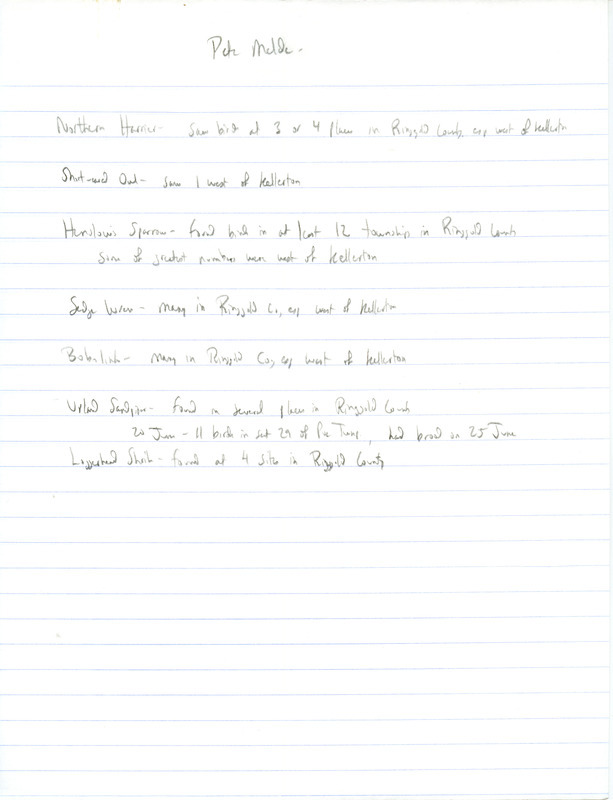 Pete Melde -
Northern Harrier - saw birds at 3 or 4 places in Ringgold County, esp west of Kellerton
Short-eared Owl - saw 1 west of Kellerton
Henslow's Sparrow - found birds in at least 12 townships in Ringgold County
Some of greatest numbers were west of Kellerton
Sedge Wren - many in Ringgold Co, esp west of Kellerton
Bobolink - many in Ringgold Co, esp west of Kellerton
Upland Sandpiper - found in several places in Ringgold County
20 June - 11 birds in sect 29 of Twp, had brood on 25 June
Loggerhead Shrike - found at 4 sites in Ringgold County